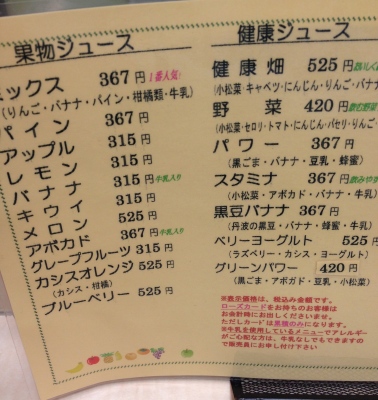 果物ジュース
ミックス 367円 1番人気!
(りんご・バナナ・パイン・柑橘類・牛乳)
パイン 367円
アップル 315円
レモン 315円
バナナ 315円 牛乳入り
キウイ 315円
メロン 525円
アボカド 367円 牛乳入り
グレープフルーツ 315円
カシスオレンジ 525円
(カシス・柑橘)
ブルーベリー 525円
健康ジュース
健康畑 525円
(小松菜・キャベツ・にんじん・りんご・バナナ
野菜 420円 飲む野菜
(小松菜・セロリ・トマト・にんじん・パセリ・りんご・
パワー 367円
(黒ごま・バナナ・豆乳・蜂蜜)
スタミナ 367円
(小松菜・アボカド・バナナ・牛乳)
黒豆バナナ 367円
(丹波の黒豆・バナナ・蜂蜜・牛乳)
ベリーヨーグルト 525円
(ラズベリー・カシス・ヨーグルト)
グリーンパワー 420円
(黒ごま・アボカド・豆乳・小松菜)
※表示価格は、税込み金額です。
ローズカードをお持ちのお客様は
お会計時にお出しくださいませ。
ただしカードは
※牛乳を使用しているメニューでアレルギー
がご心配な方は、牛乳なしでもできますの
で販売員にお申し付け下さい